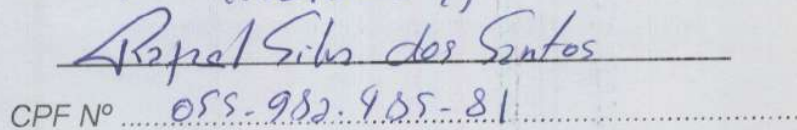 Rafael Silva dos Santos
CPF Nº 055-982.985-81